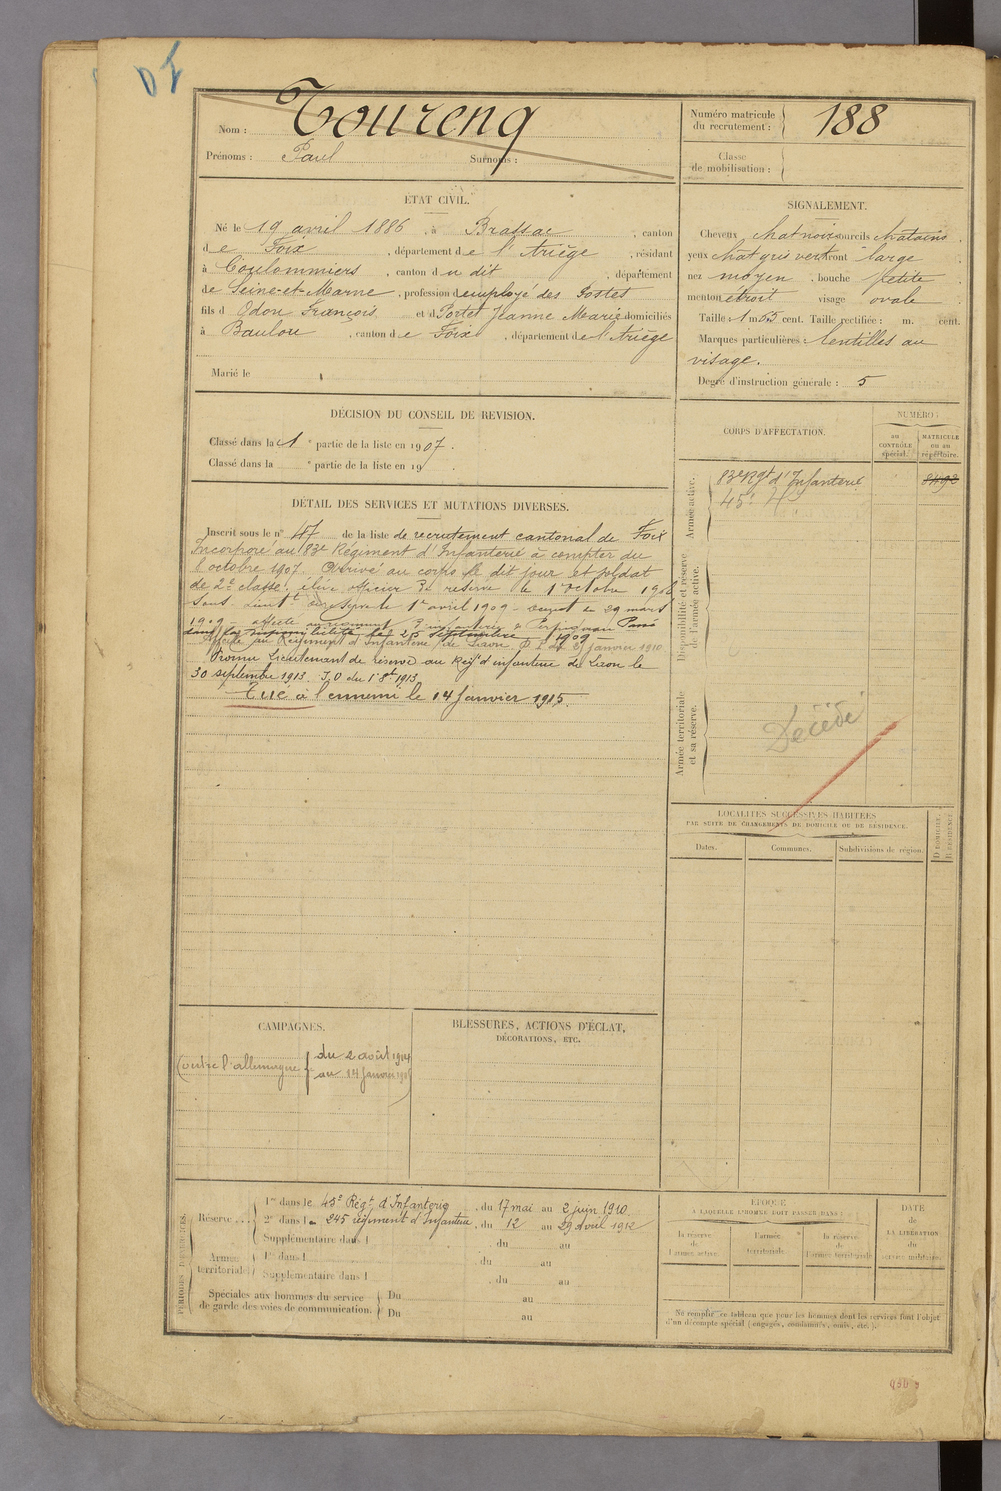 Nom : Toureng
Prénoms : Paul Surnoms :
Numéro matricule du recrutement : 188
Classe de mobilisation :
ÉTAT CIVIL.
Né le 19 avril 1886, à Brassac, canton
de Foix, département de l'Ariège, résidant
à Coulommiers, canton du dit, département
de Seine-et-Marne, profession d employé des Postes
fils d Odon François et d Portet Jeanne Marie domiciliés
à Baulou, canton de Foix, département de l'Ariège
Marié le
SIGNALEMENT.
Cheveux chat noirs sourcils chatains
yeux chat gris vert front large
nez moyen, bouche petite
menton étroit visage ovale
Taille : 1 m. 65 cent. Taille rectifiée : m. cent.
Marques particulières : lentilles au
visage.
Degré d'instruction générale : 5
DÉCISION DU CONSEIL DE REVISION.
Classé dans la 1 e partie de la liste en 1907.
Classé dans la e partie de la liste en 19 .
CORPS D'AFFECTATION.
NUMÉRO :
au CONTRÔLE spécial.
MATRICULE ou au répertoire.
Armée active.
83e Rgt d'Infanterie 8492
45e
Disponibilité et réserve de l'armée active.
Armée territoriale et sa réserve.
Décédé
DÉTAIL DES SERVICES ET MUTATIONS DIVERSES.
Inscrit sous le n° 47 de la liste de recrutement cantonal de Foix
Incorporé au 83e Régiment d'Infanterie à compter du
octobre 1907. Arrivé au corps le dit jour et soldat
de 2e classe. élève officier de réserve le 1er octobre 1908
Sous-Lieutt de réserve le 1er avril 1909 29 mars
1909 affecté Perpignan Passé
dans la disponibilité le 25 septembre 1909
Affecté au Régiment d'Infanterie de Laon janvier 1910
Promu Lieutenant de réserve au Régt d'infanterie de Laon le
30 septembre 1913. J.O du 1er 8bre 1913
Tué à l'ennemi le 14 Janvier 1915.
LOCALITÉS SUCCESSIVES HABITÉES
PAR SUITE DE CHANGEMENTS DE DOMICILE OU DE RÉSIDENCE.
Dates. Communes. Subdivisions de région. D DOMICILE. R RÉSIDENCE.
CAMPAGNES.
Contre l'allemagne { du 2 août 1914
au 14 Janvier 1915
BLESSURES, ACTIONS D'ÉCLAT,
DÉCORATIONS, ETC.
PÉRIODES D'EXERCICES.
Réserve
1re dans le 45e Régt d'Infanterie, du 17 mai au 2 juin 1910
2e dans le 245 régiment d'Infanterie, du 12 au 29 avril 1912
Supplémentaire dans l , du au
Armée territoriale
1re dans l , du au
Supplémentaire dans l , du au
Spéciales aux hommes du service de garde des voies de communication.
Du au
Du au
ÉPOQUE
À LAQUELLE L'HOMME DOIT PASSER DANS :
la réserve de l'armée active.
l'armée territoriale.
la réserve de l'armée territoriale.
DATE de LA LIBÉRATION du service militaire.
Ne remplir ce tableau que pour les hommes dont les services font l'objet
d'un décompte spécial (engagés, condamnés, omis, etc.).